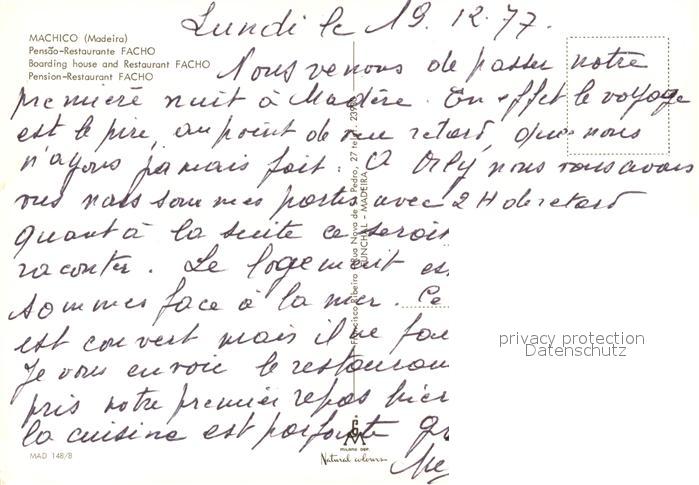 Lundi le 19.12.77.
MACHICO (Madeira)
Pensão-Restaurante FACHO
Boarding house and Restaurant FACHO
Pension-Restaurant FACHO
Nous venons de passer notre
première nuit à Madère. En effet le voyage
est le pire, au point de vue retard, que nous
n'ayons jamais fait. A Orly nous vous avons
vus nous sommes partis avec 2 H de retard
quant à la suite ce serait
raconter. Le logement es
sommes face à la mer. Ce
est couvert mais il ne fai
Je vous envoie le restauran
pris notre premier repas hier
la cuisine est parfaite
Francisco Ribeiro Rua Nova de S. Pedro, 27 telef.
FUNCHAL - MADEIRA
MAD 148/B
MILANO DEP.
Natural colours
privacy protection
Datenschutz